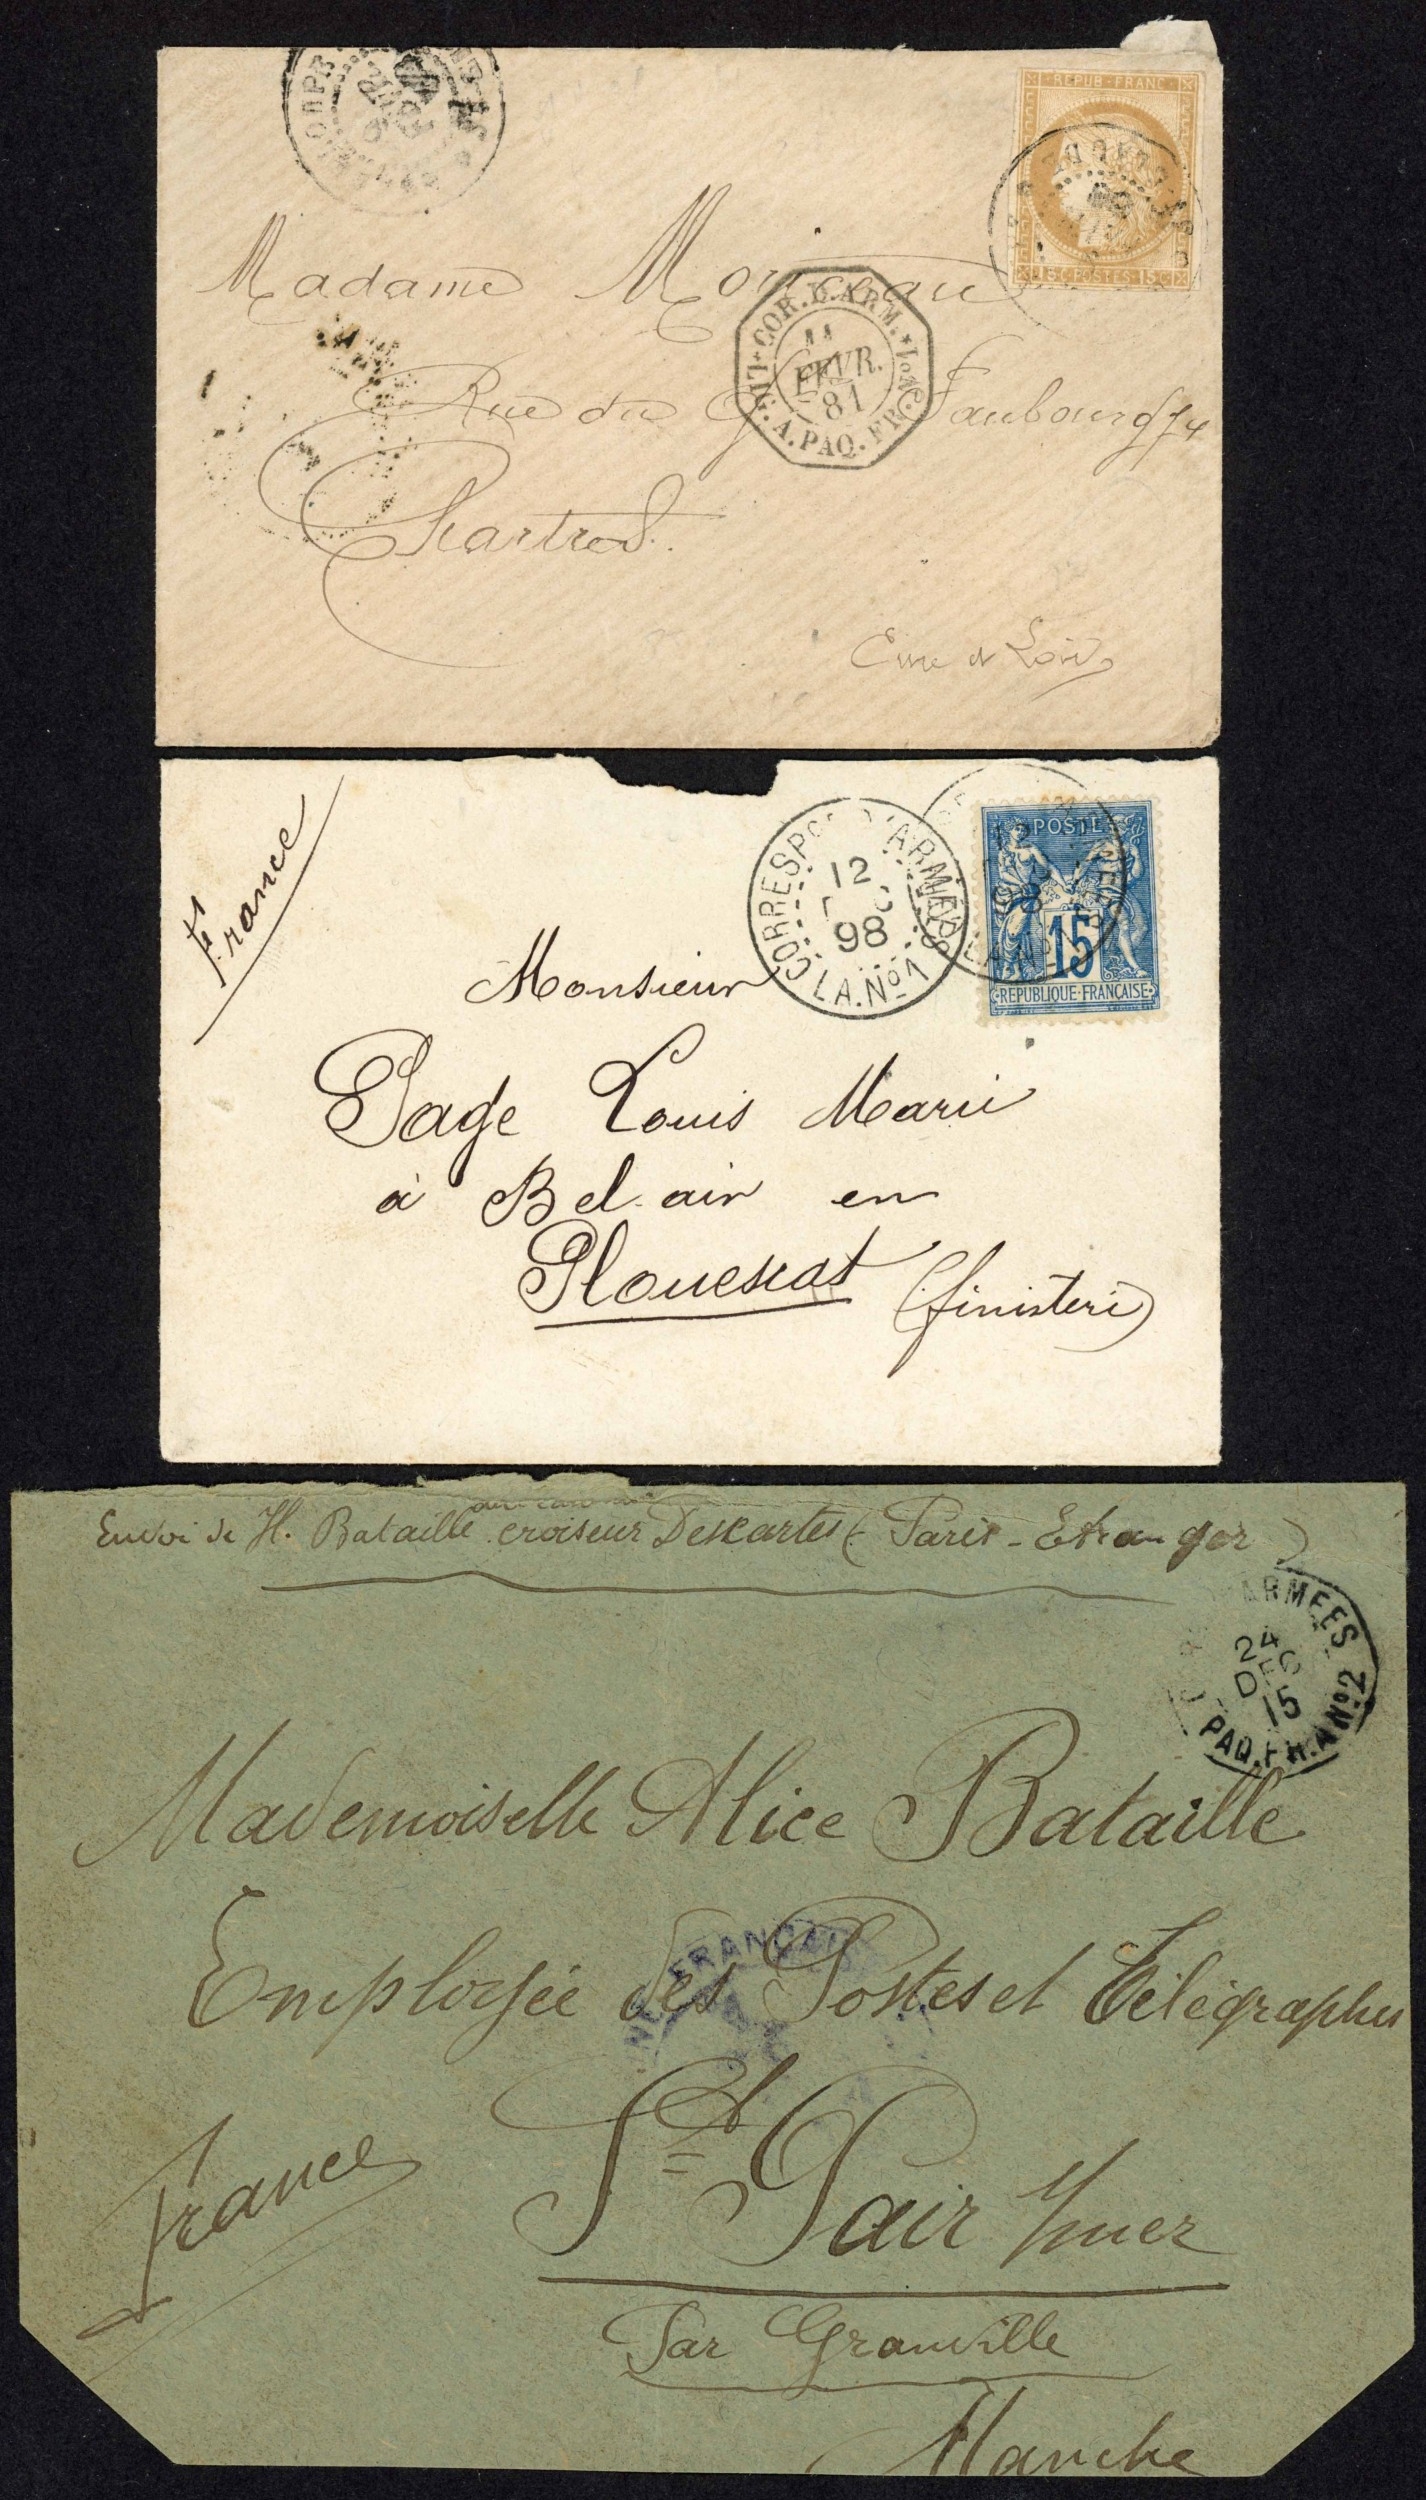 REPUB·FRANC
15 C·POSTES·15 C
COR.D.ARM.
LIG. A. PAQ. FR. No 1
11
FEVR.
81
Madame
Rue du Faubourg
Chartres.
Eure et Loir
France
CORRESP D'ARMEES
12
98
LA.No1
POSTES
15
REPUBLIQUE FRANÇAISE
Monsieur
Sage Louis Marie
à Bel-air en
Plouescat (finistère)
Envoi de H. Bataille croiseur Descartes (Paris-Etranger)
ARMEES
24
DEC
15
PAQ.FR.A No2
Mademoiselle Alice Bataille
Employée des Postes et Télégraphes
FRANÇAISE
St Pair s/mer
France
Par Granville
Manche